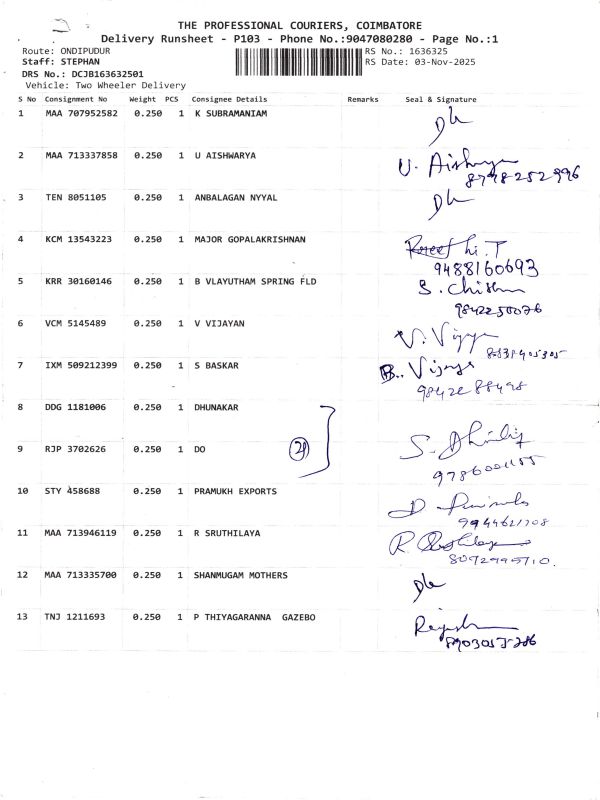 THE PROFESSIONAL COURIERS, COIMBATORE
Delivery Runsheet - P103 - Phone No.:9047080280 - Page No.:1
Route: ONDIPUDUR RS No.: 1636325
Staff: STEPHAN RS Date: 03-Nov-2025
DRS No.: DCJB163632501
Vehicle: Two Wheeler Delivery
S No Consignment No Weight PCS Consignee Details Remarks Seal & Signature
1 MAA 707952582 0.250 1 K SUBRAMANIAM
2 MAA 713337858 0.250 1 U AISHWARYA U. Aishwarya
8798252996
3 TEN 8051105 0.250 1 ANBALAGAN NYYAL
4 KCM 13543223 0.250 1 MAJOR GOPALAKRISHNAN
9488160693
5 KRR 30160146 0.250 1 B VLAYUTHAM SPRING FLD
9842250076
6 VCM 5145489 0.250 1 V VIJAYAN
7 IXM 509212399 0.250 1 S BASKAR B. Vijaya
8 DDG 1181006 0.250 1 DHUNAKAR
9 RJP 3702626 0.250 1 DO
10 STY 458688 0.250 1 PRAMUKH EXPORTS
11 MAA 713946119 0.250 1 R SRUTHILAYA
12 MAA 713335700 0.250 1 SHANMUGAM MOTHERS
13 TNJ 1211693 0.250 1 P THIYAGARANNA GAZEBO